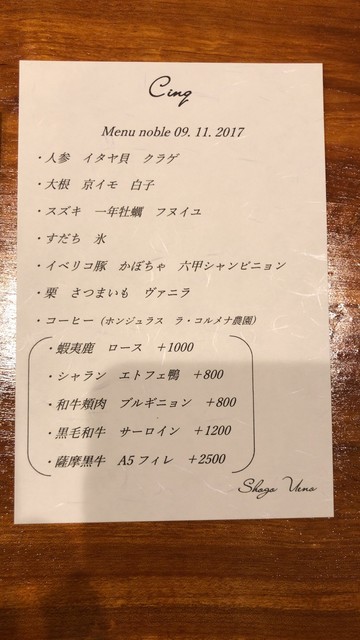 Cinq
Menu noble 09. 11. 2017
・人参　イタヤ貝　クラゲ
・大根　京イモ　白子
・スズキ　一年牡蠣　フヌイユ
・すだち　氷
・イベリコ豚　かぼちゃ　六甲シャンピニョン
・栗　さつまいも　ヴァニラ
・コーヒー（ホンジュラス　ラ・コルメナ農園）
・蝦夷鹿　ロース　+1000
・シャラン　エトフェ鴨　+800
・和牛頬肉　ブルギニョン　+800
・黒毛和牛　サーロイン　+1200
・薩摩黒牛　A5フィレ　+2500
Shogo Ueno